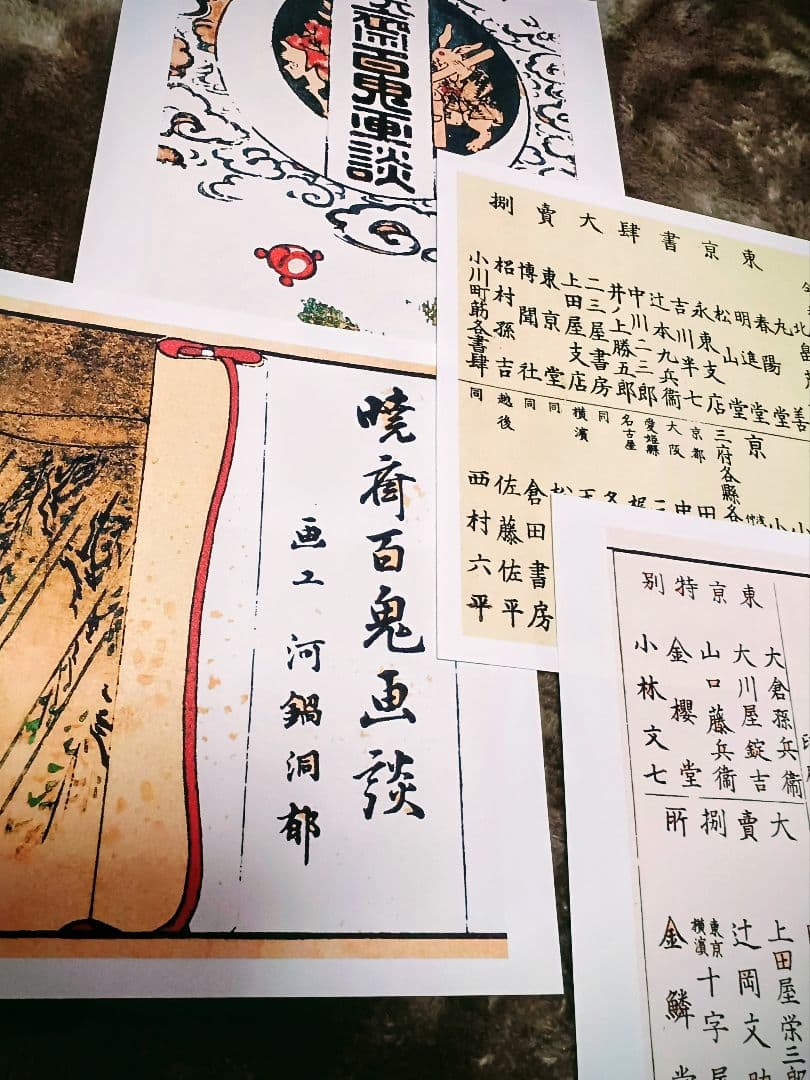 百鬼画談
暁斎百鬼画談
画工 河鍋洞郁
東京書肆大賣捌
春陽堂
明進堂
松山堂
永東支店
吉川半七
辻本九兵衞
中川二三郎
井ノ上勝五郎
二三屋書房
上田屋支店
東京堂
博聞社
柗村孫吉
小川町筋各書肆
三府各縣各
京都
大阪
愛媛縣
名古屋
同
横濱
同 倉田書房
越後 佐藤佐平
同 西村六平
東京特別
大賣捌所
大倉孫兵衞
大川屋錠吉
山口藤兵衞
金櫻堂
小林文七
上田屋栄三郎
辻岡文助
東京
横濱
十字屋
金鱗堂